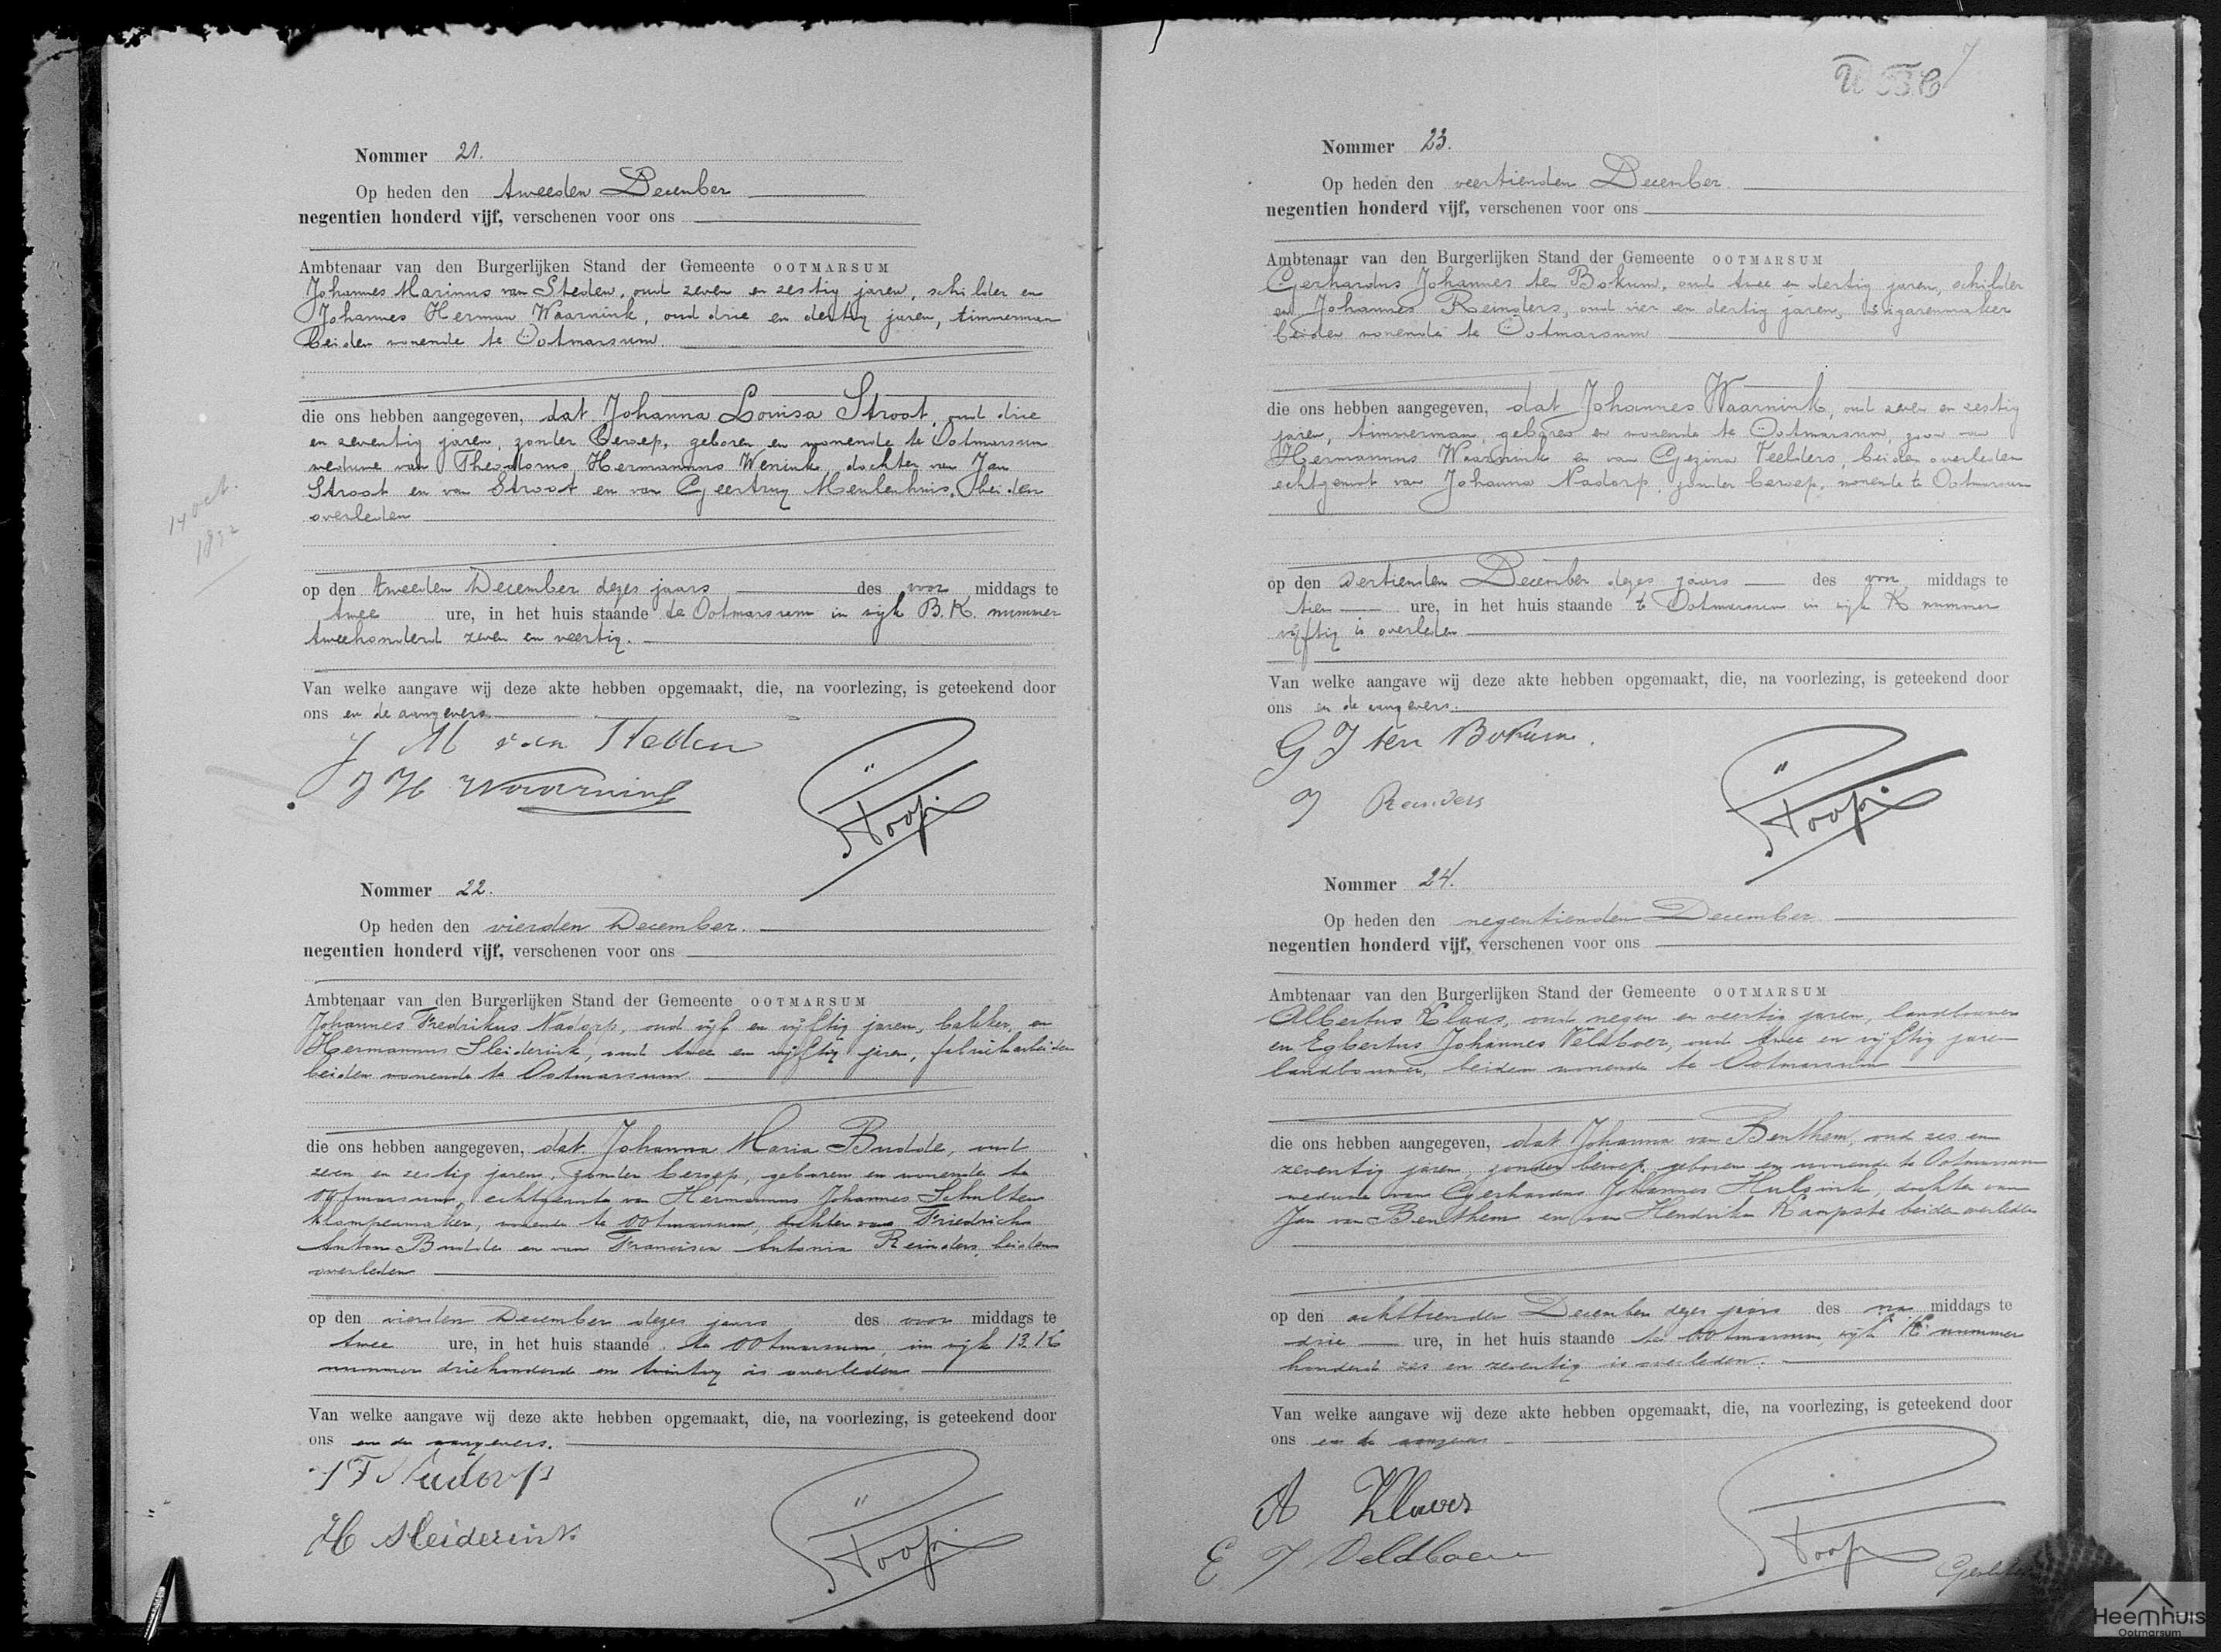 Nommer 21.
Op heden den tweeden December
negentien honderd vijf, verschenen voor ons
Ambtenaar van den Burgerlijken Stand der Gemeente OOTMARSUM
Johannes Marinus van Steden, oud zeven en zestig jaren, schilder en
Johannes Herman Waarnink, oud drie en dertig jaren, timmerman
beiden wonende te Ootmarsum.
die ons hebben aangegeven, dat Johanna Louisa Stroot, oud drie
en zeventig jaren, zonder beroep, geboren en wonende te Ootmarsum
weduwe van Theodorus Hermannus Wenink, dochter van Jan
Stroot en van Stroot en van Geertruy Meulenhuis, beiden
overleden
14 oct.
1832
op den tweeden December dezes jaars des voor middags te
twee ure, in het huis staande te Ootmarsum in wijk B.K. nummer
tweehonderd zeven en veertig.
Van welke aangave wij deze akte hebben opgemaakt, die, na voorlezing, is geteekend door
ons en de aangevers.
J M van Steden
J H Waarnink
Nommer 22.
Op heden den vierden December.
negentien honderd vijf, verschenen voor ons
Ambtenaar van den Burgerlijken Stand der Gemeente OOTMARSUM
Johannes Fredrikus Nadorp, oud vijf en vijftig jaren, bakker, en
Hermannus Sleiderink, oud twee en vijftig jaren, fabriekarbeider
beiden wonende te Ootmarsum
die ons hebben aangegeven, dat Johanna Maria Budde, oud
zeven en zestig jaren, zonder beroep, geboren en wonende te
Ootmarsum, echtgenoote van Hermannus Johannes Schulten
klompenmaker, wonende te Ootmarsum, dochter van Friedrich
Anton Budde en van Francisca Antonia Reinders, beiden
overleden
op den vierden December dezes jaars des voor middags te
twee ure, in het huis staande te Ootmarsum, in wijk B.K
nummer driehonderd en twintig is overleden
Van welke aangave wij deze akte hebben opgemaakt, die, na voorlezing, is geteekend door
ons en de aangevers.
J F Nadorp
H Sleiderink
Nommer 23.
Op heden den veertienden December
negentien honderd vijf, verschenen voor ons
Ambtenaar van den Burgerlijken Stand der Gemeente OOTMARSUM
Gerhardus Johannes ten Bokum, oud twee en dertig jaren, schilder
en Johannes Reinders, oud vier en dertig jaren, sigarenmaker
beiden wonende te Ootmarsum
die ons hebben aangegeven, dat Johannes Waarnink, oud zeven en zestig
jaren, timmerman, geboren en wonende te Ootmarsum, zoon van
Hermannus Waarnink en van Gezina Veelders, beiden overleden
echtgenoot van Johanna Nadorp, zonder beroep, wonende te Ootmarsum
op den dertienden December dezes jaars des voor middags te
tien ure, in het huis staande te Ootmarsum in wijk K nummer
vijftig is overleden
Van welke aangave wij deze akte hebben opgemaakt, die, na voorlezing, is geteekend door
ons en de aangevers.
G J ten Bokum.
J Reinders
Nommer 24.
Op heden den negentienden December
negentien honderd vijf, verschenen voor ons
Ambtenaar van den Burgerlijken Stand der Gemeente OOTMARSUM
Albertus Klaas, oud negen en veertig jaren, landbouwer
en Egbertus Johannes Veldboer, oud twee en vijftig jaren
landbouwer, beiden wonende te Ootmarsum
die ons hebben aangegeven, dat Johanna van Benthem, oud zes en
zeventig jaren, zonder beroep, geboren en wonende te Ootmarsum
weduwe van Gerhardus Johannes Hulsink, dochter van
Jan van Benthem en van Hendrika Kampste beiden overleden
op den achttienden December dezes jaars des na middags te
drie ure, in het huis staande te Ootmarsum, wijk K. nummer
honderd zes en zeventig is overleden.
Van welke aangave wij deze akte hebben opgemaakt, die, na voorlezing, is geteekend door
ons en de aangevers
A Klaas
E J Veldboer
Heemhuis
Ootmarsum